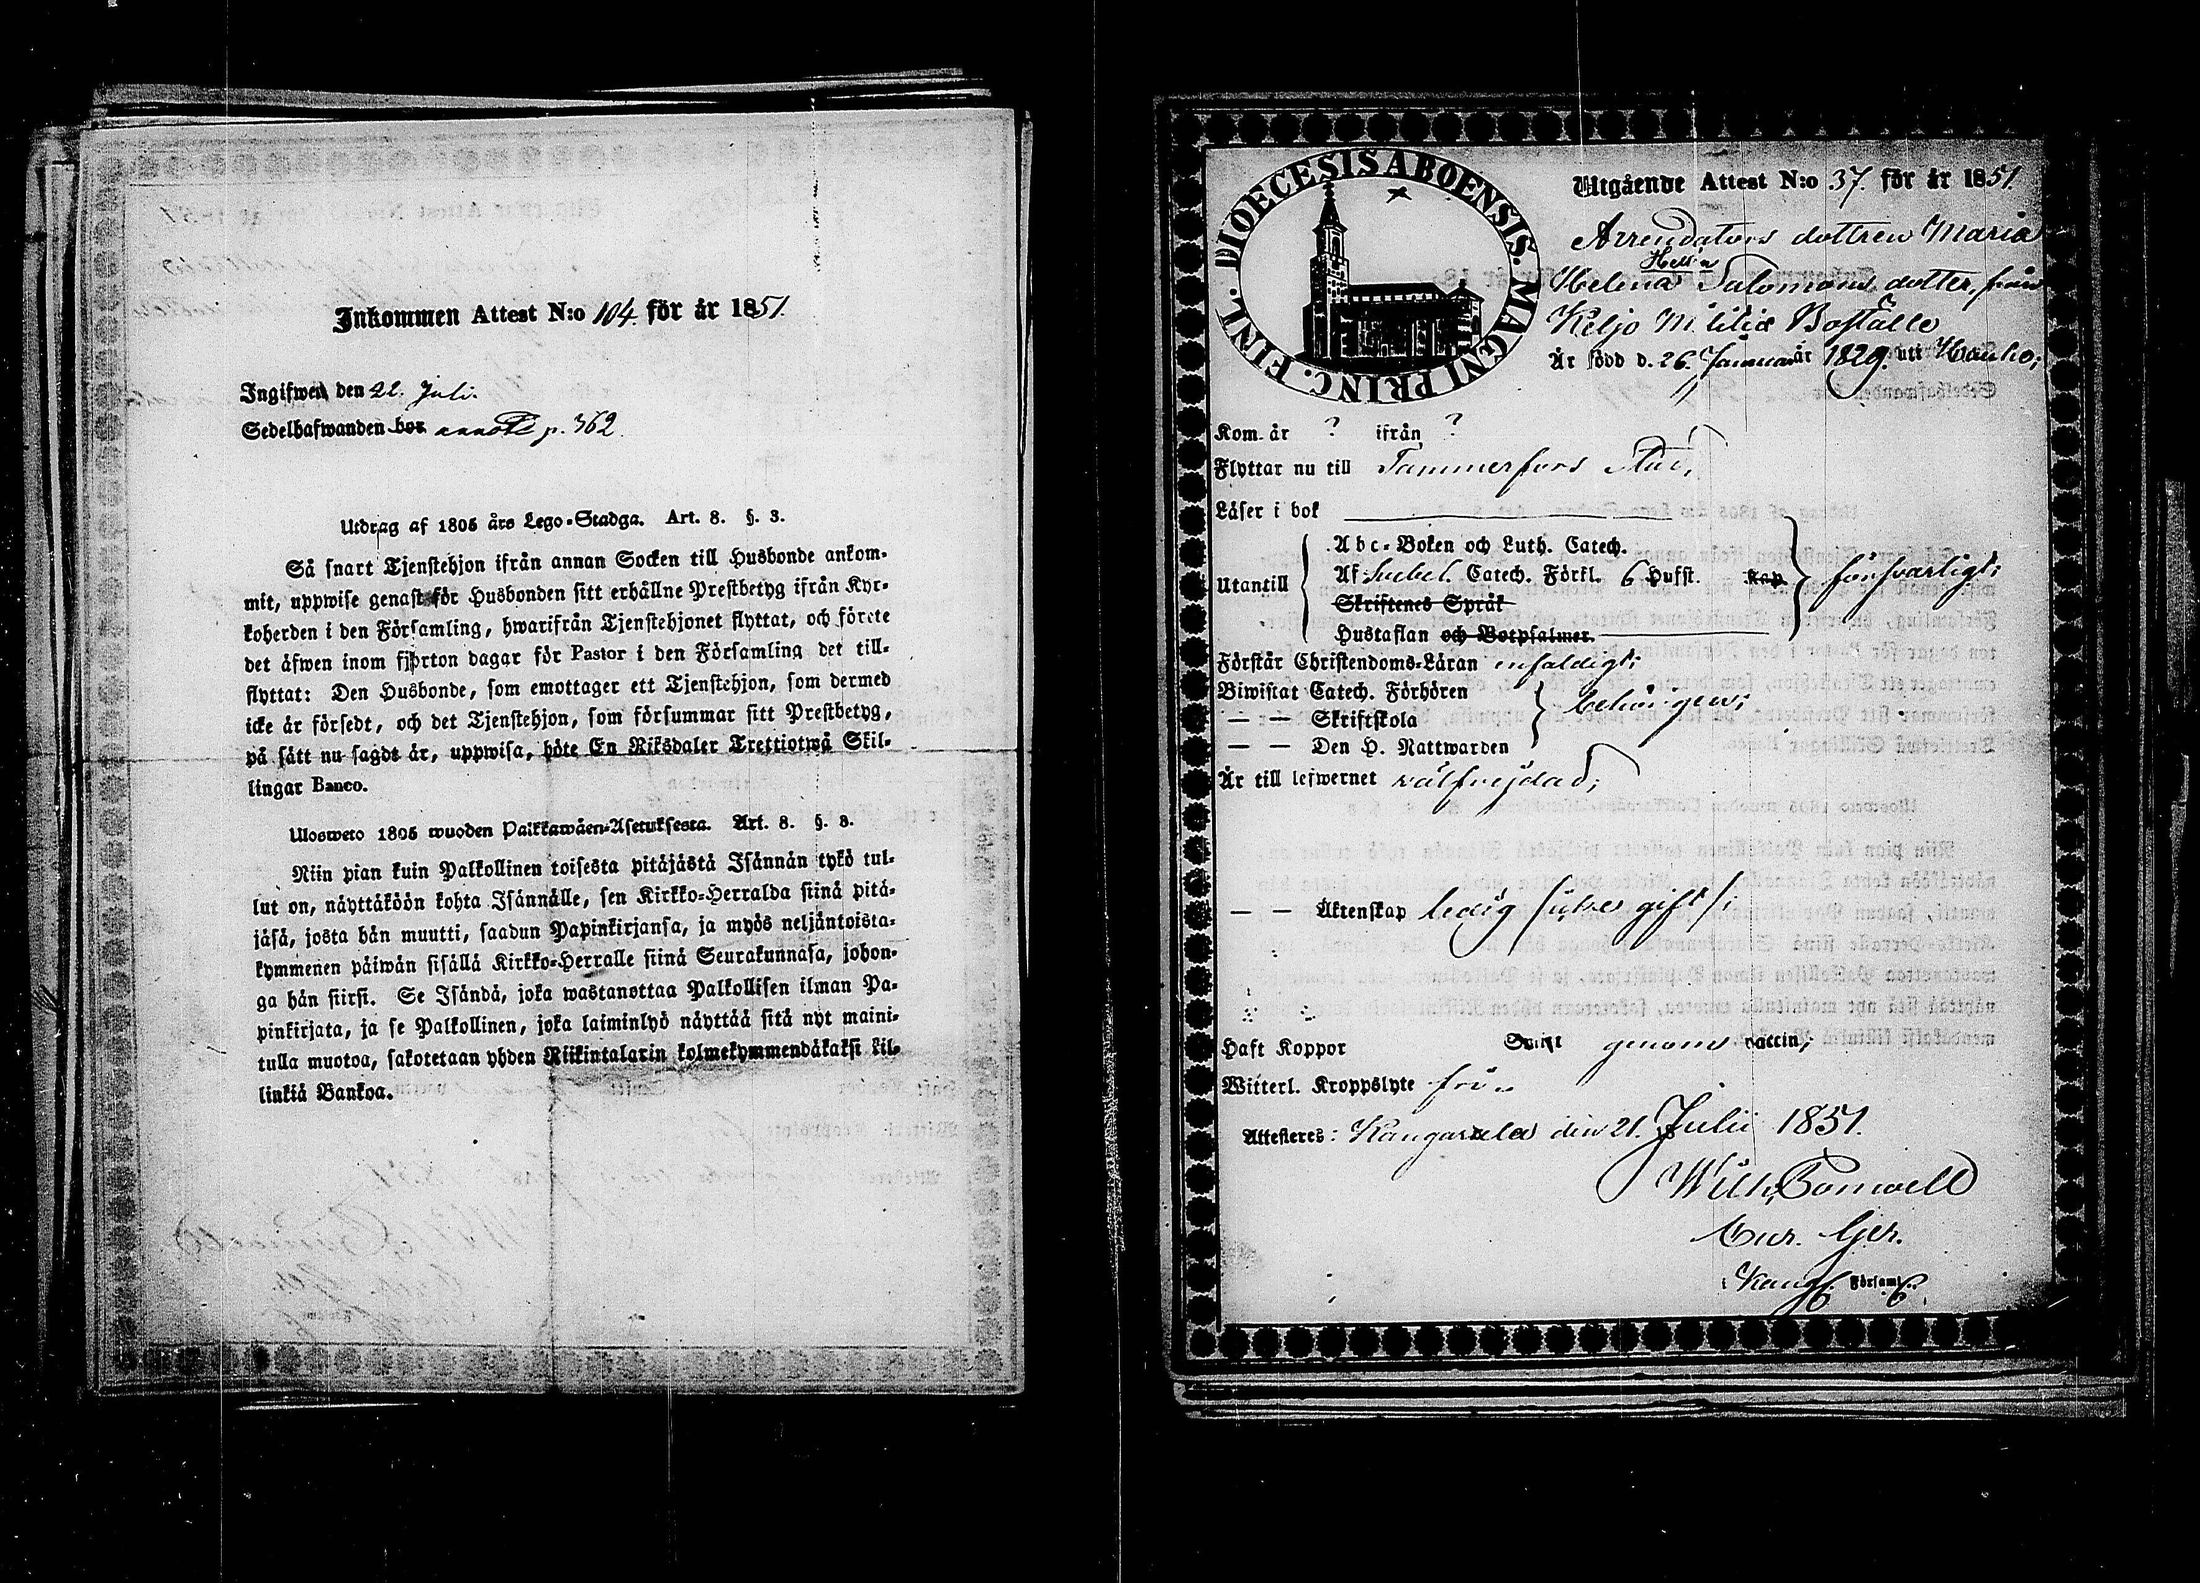 Inkommen Attest N:o 104. för år 1851.
Ingifwen den 22. Juli.
Sedelhafwanden bor annoté p. 362.
Utdrag af 1805 års Lego-Stadga. Art. 8. §. 3.
Så snart Tjenstehjon ifrån annan Socken till Husbonde ankom-
mit, uppwise genast för Husbonden sitt erhållne Prestbetyg ifrån Kyr-
koherden i den Församling, hwarifrån Tjenstehjonet flyttat, och förete
det äfwen inom fjorton dagar för Pastor i den Församling det till-
flyttat: Den Husbonde, som emottager ett Tjenstehjon, som dermed
icke är försedt, och det Tjenstehjon, som försummar sitt Prestbetyg,
på sätt nu sagdt är, uppwisa, böte En Riksdaler Trettiotwå Skil-
lingar Banco.
Ulosweto 1805 wuoden Palkkawäen-Asetuksesta. Art. 8. §. 3.
Niin pian kuin Palkollinen toisesta pitäjästä Isännän tykö tul-
lut on, näyttäköön kohta Isännälle, sen Kirkko-Herralda siinä pitä-
jäsä, josta hän muutti, saadun Papinkirjansa, ja myös neljäntoista-
kymmenen päiwän sisällä Kirkko-Herralle siinä Seurakunnasa, johon-
ga hän siirsi. Se Isändä, joka wastanottaa Palkollisen ilman Pa-
pinkirjata, ja se Palkollinen, joka laiminlyö näyttää sitä nyt maini-
tulla muotoa, sakotetaan yhden Riikintalarin kolmekymmendäkaksi kil-
linkiä Bankoa.
DIOECESIS ABOENSIS. MAGNI PRINC. FINL.
Utgående Attest N:o 37. för år 1851.
Arrendators dottren Maria
Helena Salomons dotter, från
Keljo Militiæ Boställe
Är född d. 26. Januari år 1829. uti Hauho;
Kom år ? ifrån ?
Flyttar nu till Tammerfors Stad;
Läser i bok
Utantill
Abc-Boken och Luth. Catech.
Af Svebel. Catech. Förkl. 6 Hufst. Kap.
Skriftenes Språk
Hustaflan och Botpsalmer.
försvarligt;
Förstår Christendoms-Läran enfaldigt;
Biwistat Catech. Förhören
— — Skriftskola
— — Den H. Nattwarden
behörigen;
Är till lefwernet välfrejdad;
— — Äktenskap ledig
Haft Koppor genom vaccin;
Witterl. Kroppslyte fri.
Attesteres: Kangasala den 21. Julii 1851.
Wilh.
Cur. Ger.
i Kang Församl.